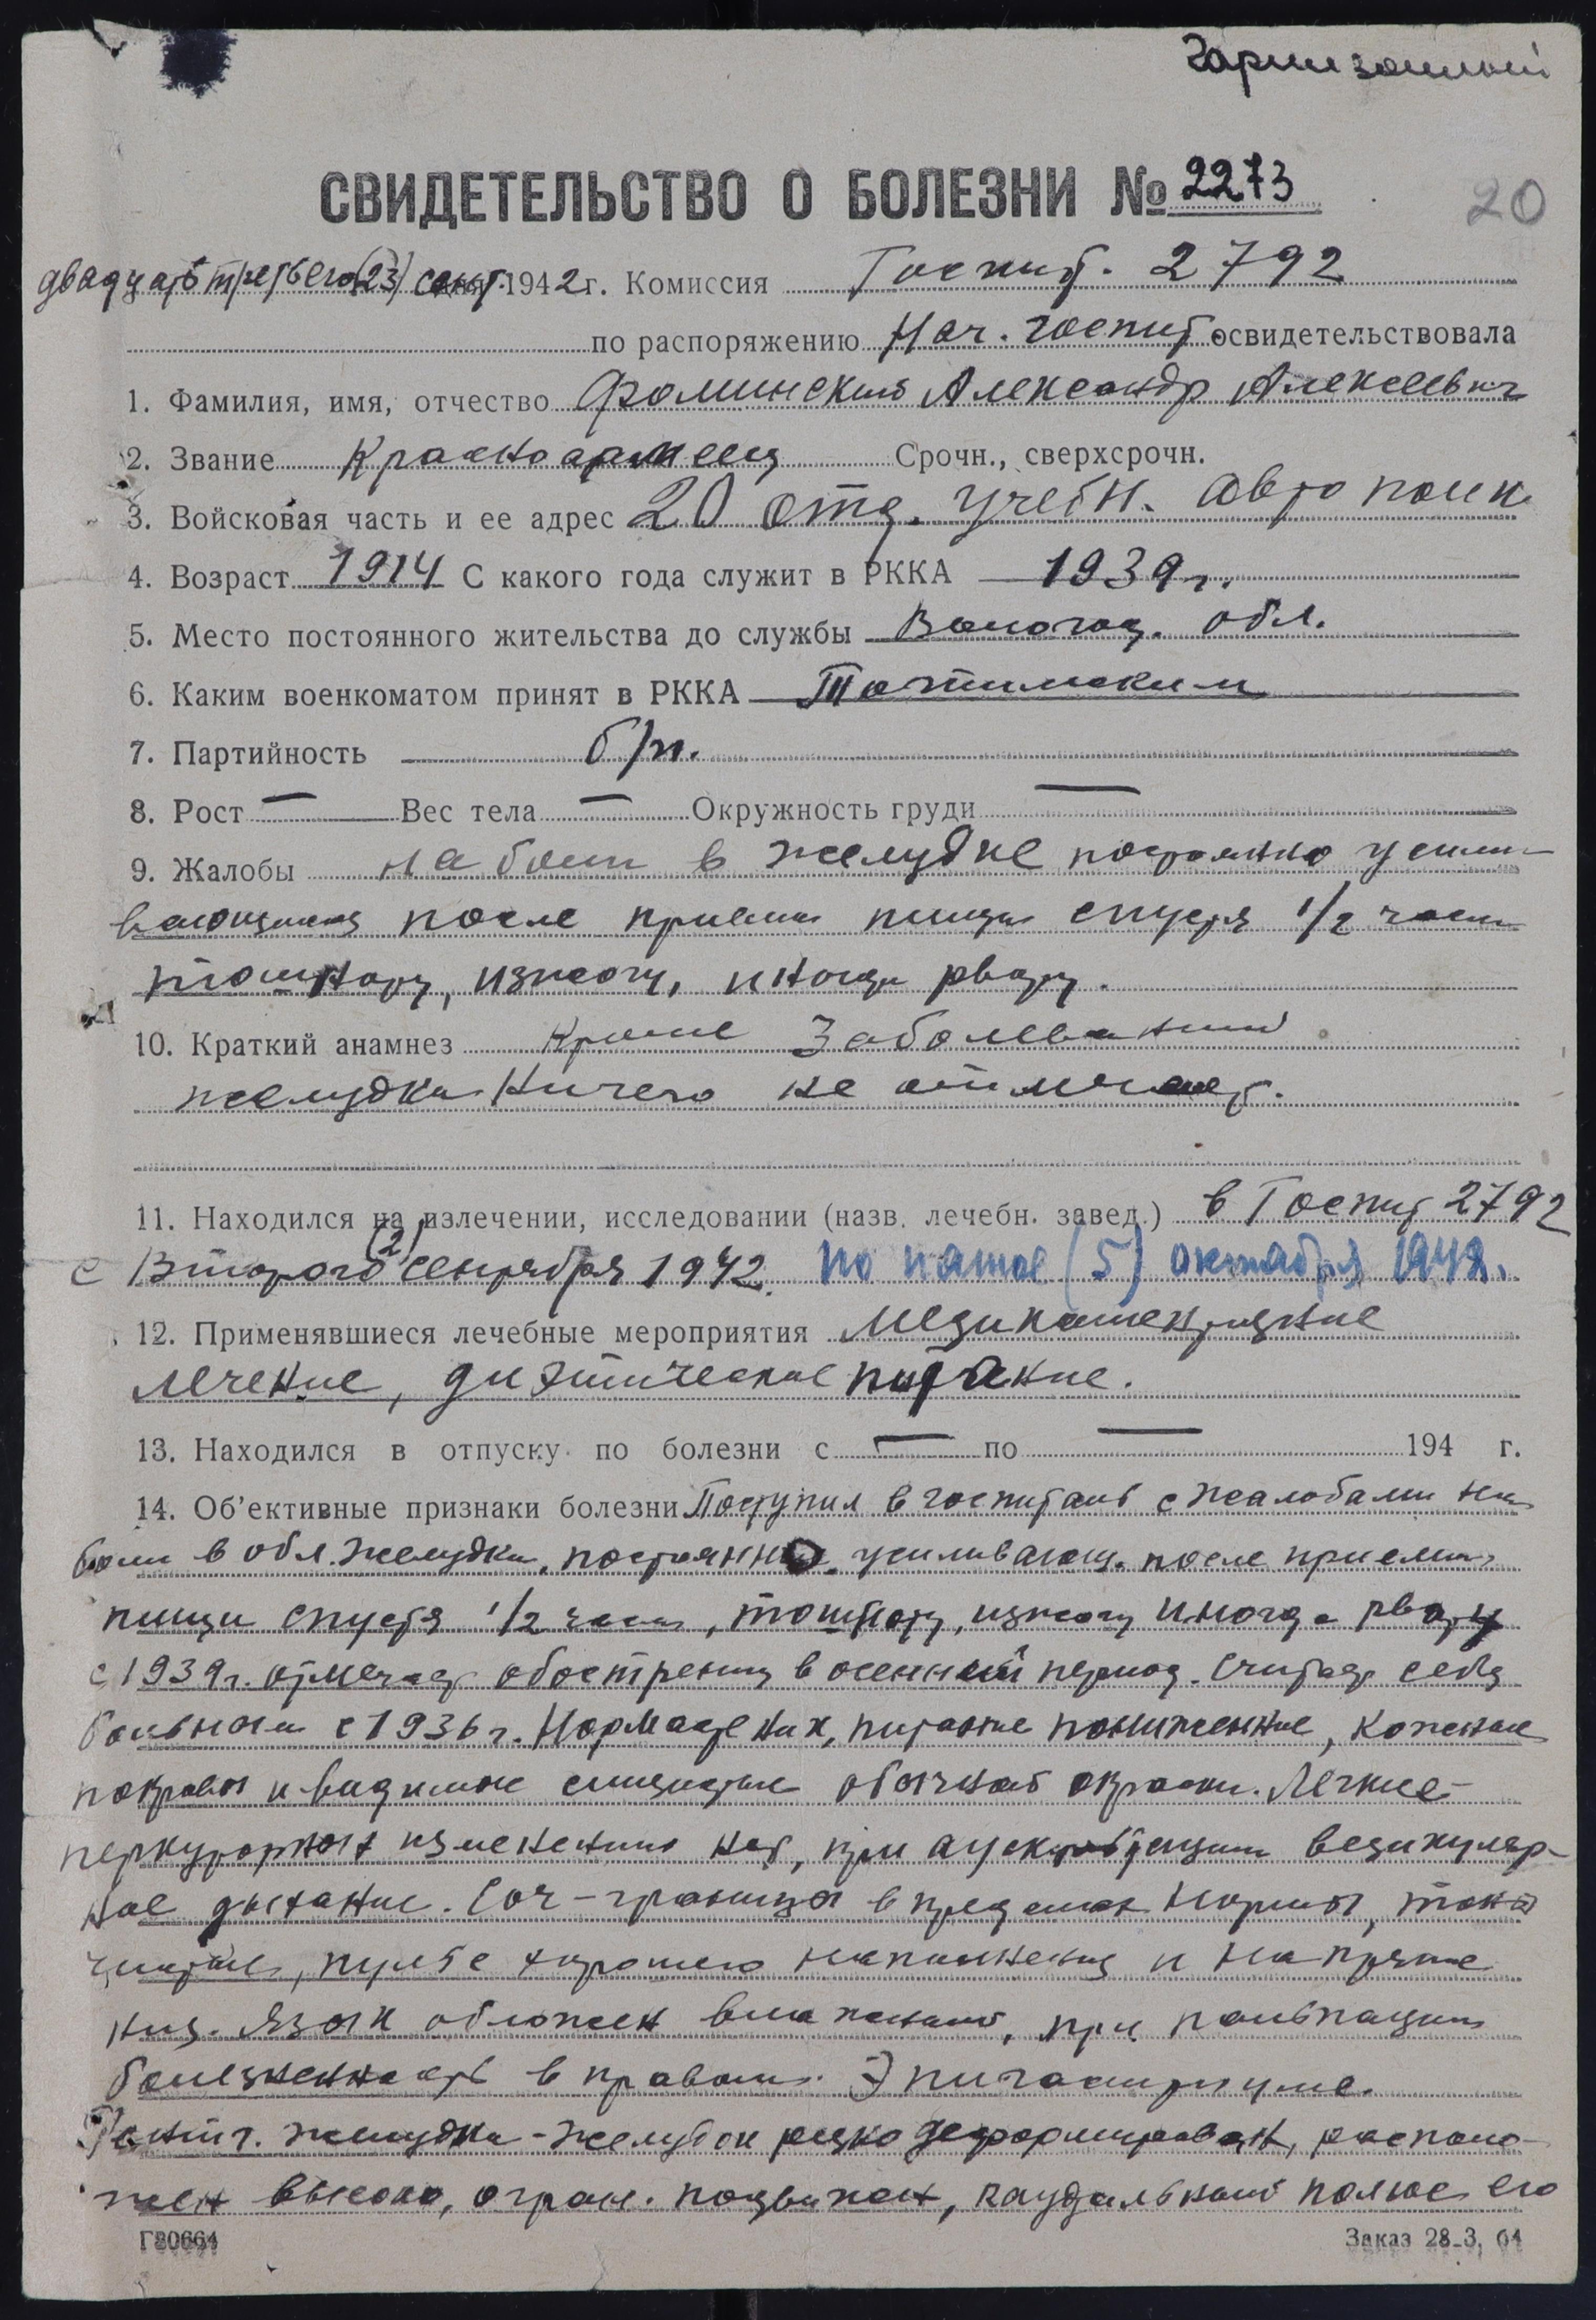 Гарнизонный
СВИДЕТЕЛЬСТВО О БОЛЕЗНИ № 2273
20
двадцать третьего (23) сент. 1942 г. Комиссия Госпит. 2792
по распоряжению Нач. госпит освидетельствовала
1. Фамилия, имя, отчество Фоминский Александр Алексеевич
2. Звание Красноармеец Срочн., сверхсрочн.
3. Войсковая часть и ее адрес 20 отд. учебн. авто полк
4. Возраст 1914 С какого года служит в РККА 1939 г.
5. Место постоянного жительства до службы Вологод. обл.
6. Каким военкоматом принят в РККА Тотьмским
7. Партийность б/п.
8. Рост — Вес тела — Окружность груди —
9. Жалобы на боли в желудке постоянно усили-
вающиеся после приема пищи спустя 1/2 часа
тошноту, изжогу, иногда рвоту.
10. Краткий анамнез Кроме заболеваний
желудка ничего не отмечает.
11. Находился на излечении, исследовании (назв. лечебн. завед.) в Госпит 2792
с Второго (2) сентября 1942. по пятое (5) октября 1942.
12. Применявшиеся лечебные мероприятия Медикаментозное
лечение, диэтическое питание.
13. Находился в отпуску по болезни с — по — 194 г.
14. Об'ективные признаки болезни Поступил в госпиталь с жалобами на
боли в обл. желудка, постоянно усиливающ. после приема
пищи спустя 1/2 часа, тошноту, изжогу иногда рвоту
с 1939 г. отмечает обострения в осенний период. Считает себя
больным с 1936 г. Нормастеник, питание пониженное, кожные
покровы и видимые слизистые обычной окраски. Легкие-
перкуторных изменений нет, при аускультации везикуляр-
ное дыхание. Сог - границы в пределах нормы, тоны
чистые, пульс хорошего наполнения и напряже
ния. Язык обложен влажный, при пальпации
болезненность в правом эпигастриуме.
Рентг. желудка - Желудок резко деформирован, располо-
жен высоко, огран. подвижен, каудальный полюс его
Г80664
Заказ 28-3, 64